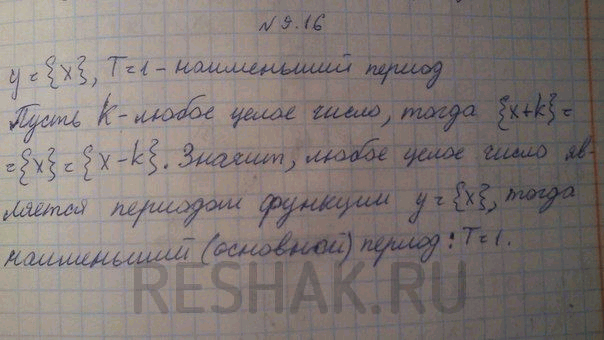 №9.16
y = {x}, T=1 - наименьший период
Пусть k - любое целое число, тогда {x+k} =
= {x} = {x-k}. Значит, любое целое число яв-
ляется периодом функции y = {x}, тогда
наименьший (основной) период: T=1.
RESHAK.RU